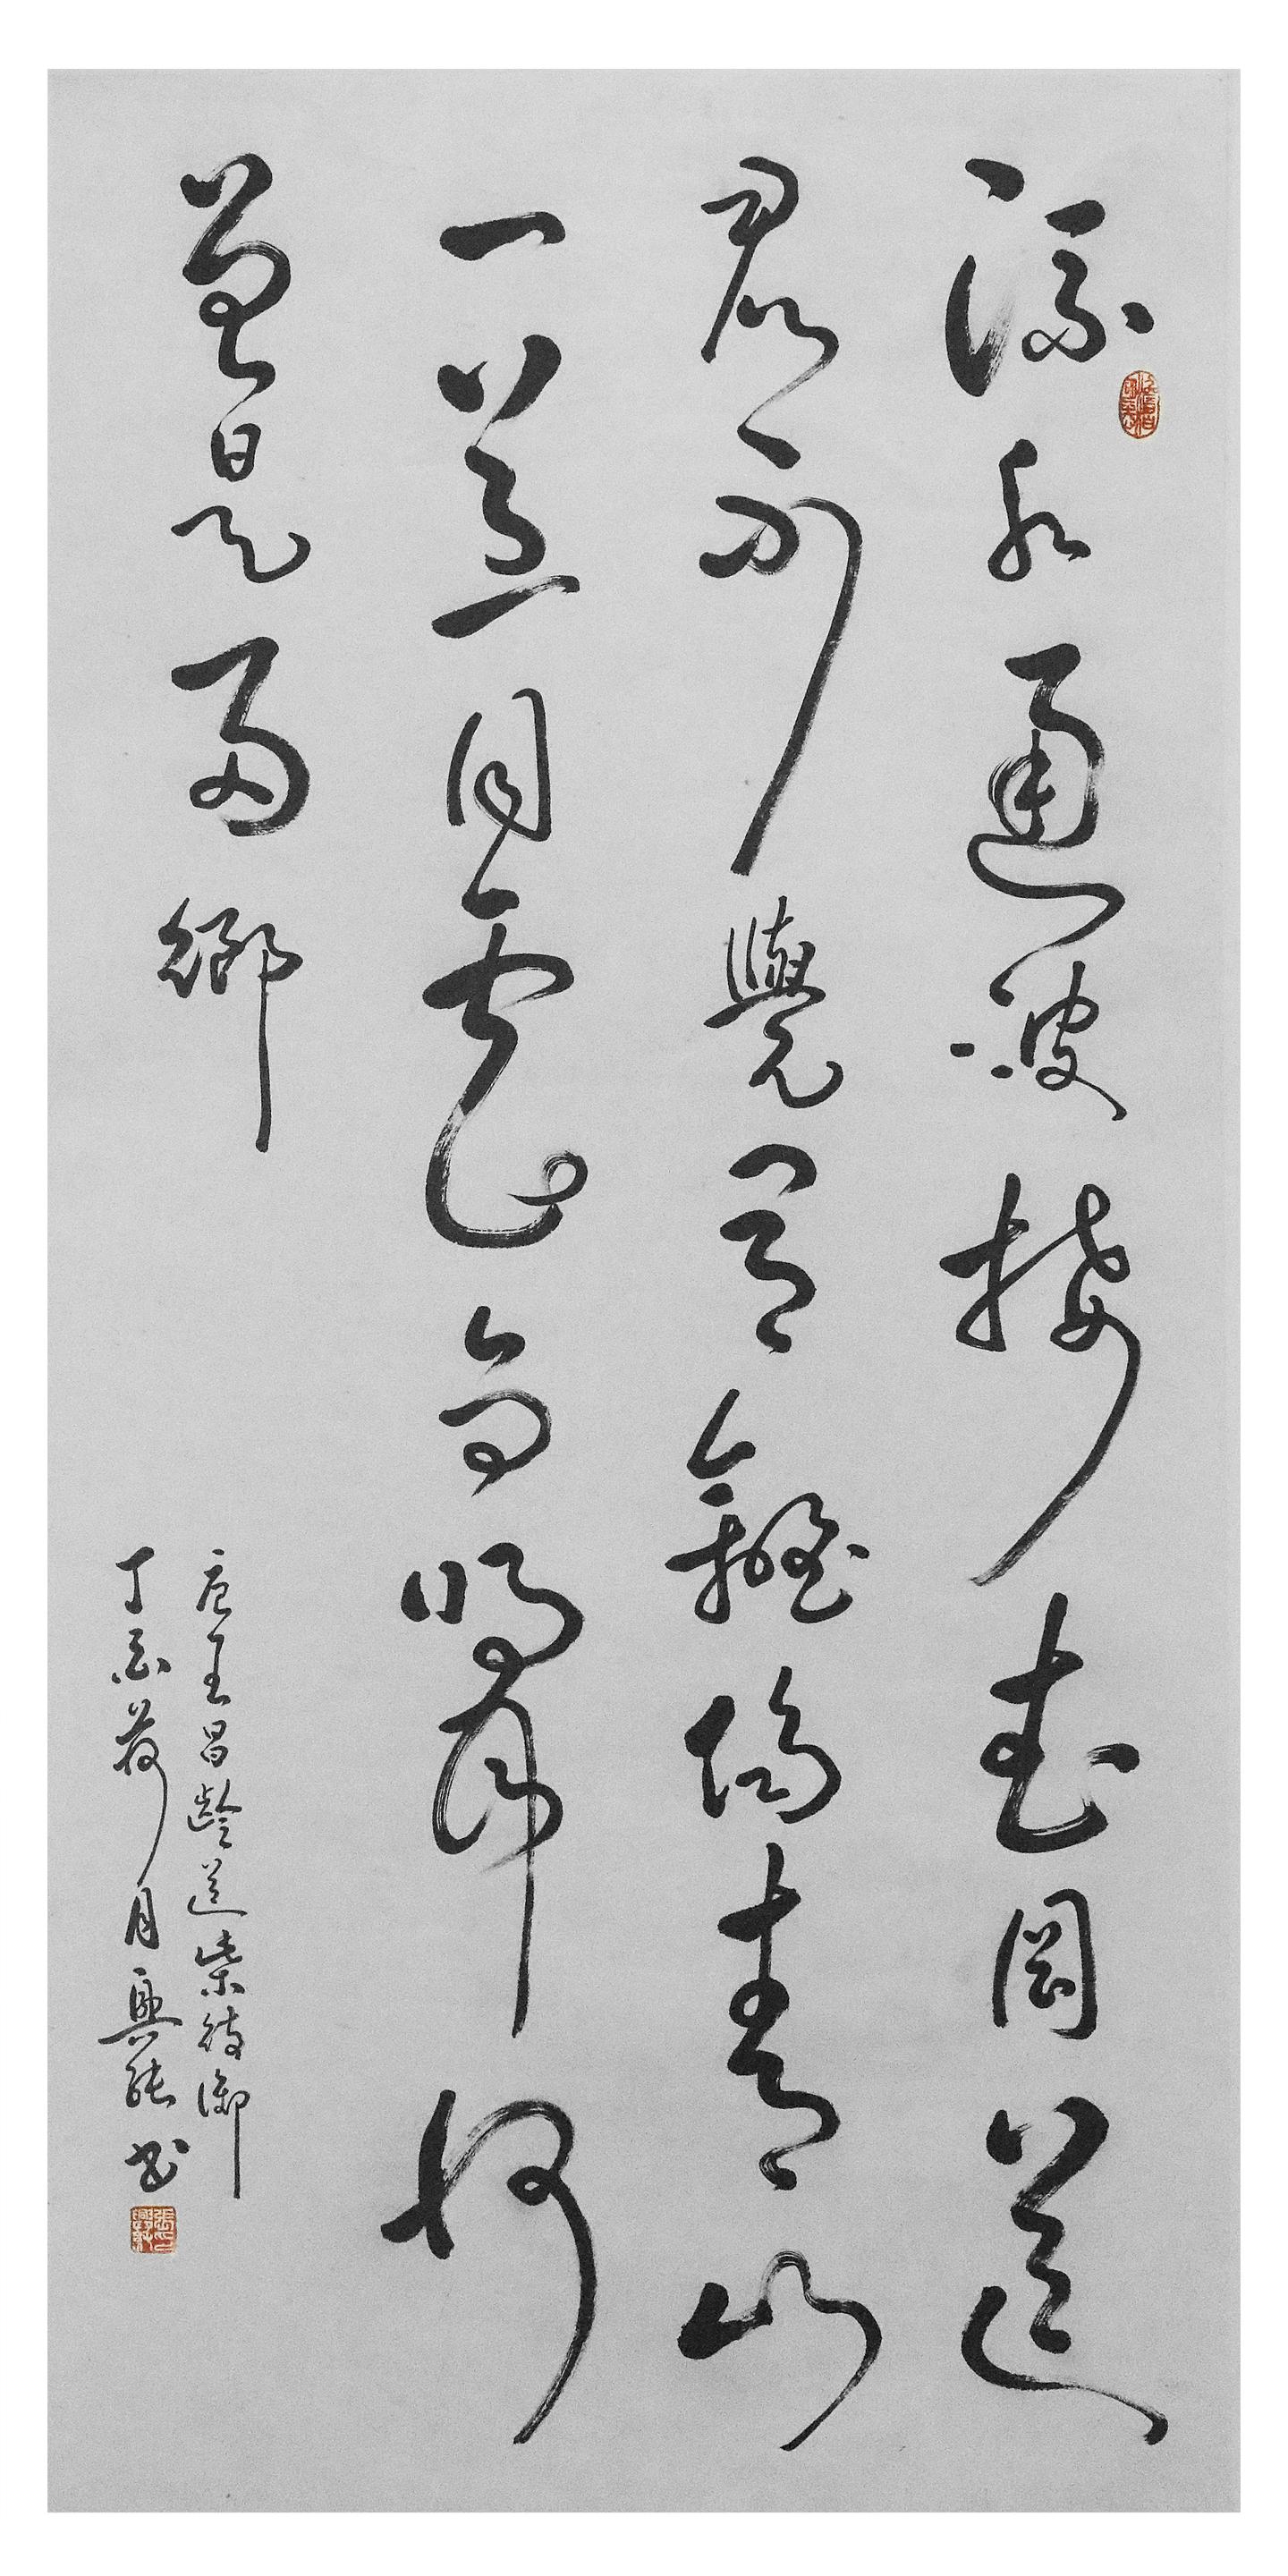 流水通波接武岡送
君不覺有離傷青山
一道同雲雨明月何
曾是兩鄉
唐王昌齡送柴侍御
丁荷月興書